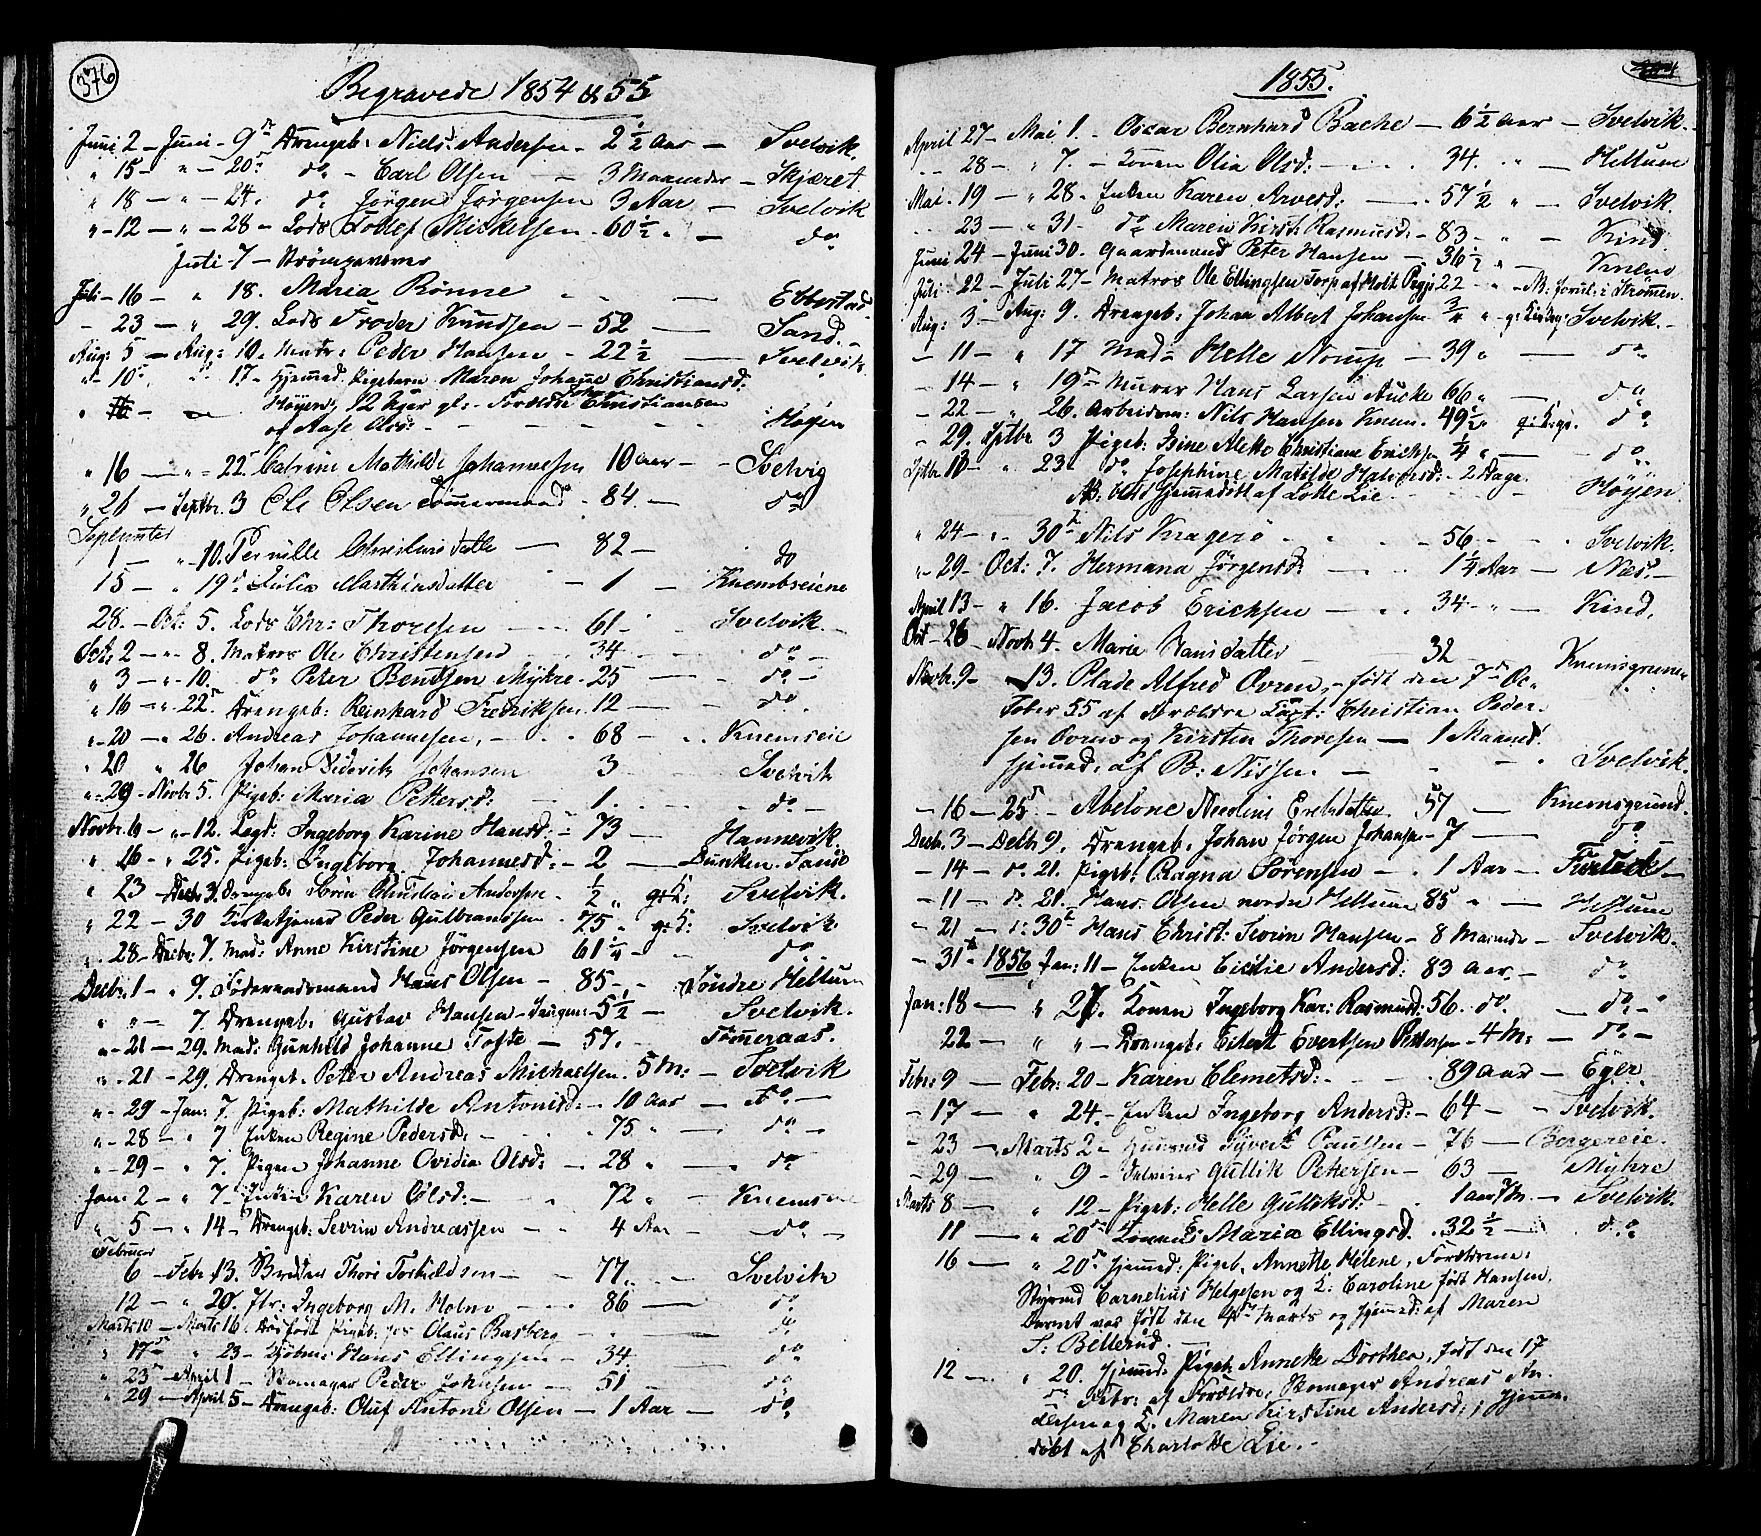 376
Begravede 1854 & 55
Juni 2 – Juni – 9de Drengeb: Niels Andersen – 2 1/2 Aar – Svelvik.
" 15 – " – 20de do – Carl Olsen – 3 Maaneder – Skjæret
" 18 – " – 24. do Jørgen Jørgensen 3 Aar – Svelvik
" – 12 – " – 28 – Lods Tollef Mickelsen – 60 1/2 " – do
Juli – 7 –
Juli – 16 – " 18. Maria Rönne – Ebbestad
– 23 – " 29. Lods Froder Knudsen – 52 – Sand.
Aug: 5 – Aug: 10. Matr: Peder Hansen – 22 1/2 – Svelvik
" – 10 17 – Hjemmed. Pigebarn Maren Johanne Christiansd.
Høyen, 12 Uger gl: – Forældre Johan Christiansen
og Aase Olsd: – Høyen
" 16 – " – 22de Catrine Mathilde Johannesen 10 Aar – Svelvig
" 26 – Septbr. 3 Ole Olsen Tömmermand – 84. – do
September
1 – " – 10. Pernille Christensdatter – 82 – do
15 – " 19de Julia Marthinsdatter – 1 – Knembseiene
28. – Oct: 5. Lods Chr: Thoresen – 61 – Svelvik.
Oct: 2 – " – 8. Matros Ole Christensen – 34 – do
" 3 – " – 10. do Peter Bentsen Myhre – 25 – do
" 16 – " 22de Drengeb: Reinhard Fredriksen 12 – do
" – 20 – " 26. Andreas Johannesen, – 68 – Knemseie
" 20 " 26 Johan Diderik Johansen 3 – Svelvik
" – 29 – Novbr 5. Pigeb: Maria Pettersd: – 1 – do
Novbr. 6 – " – 12. Lagd: Ingeborg Karine Hansd: – 73 – Hannevik.
" 16 – " 25. Pigeb: Ingeborg Johannesd: – 2 – Dunken. Sand
" 23 – Decb. 3. Drengeb. Sören Christian Andersen – 1/2 " g: K: Svelvik.
" 22 – 30 Kirketjener Peder Gulbrandsen – 75 " g: K: Svelvik
" 28 – Decbr. 7. Mad: Anne Kirstine Jörgensen 61 1/4 – do
Decbr. 1 – " 9. Föderaadsmand Hans Olsen – 85 – Söndre Hellum
" " – 7. Drengeb. Gustav Hansen – 5 1/2 – Svelvik.
" – 21 – 29. Mad: Gunhild Johanne Tofte – 57. – Tømeraas.
" – 21 – 29. Drengeb. Peter Andreas Michaelsen. 5 M: – Svelvik
" – 29 – Jan: 7. Pigeb: Mathilde Antonisd: – 10 Aar – do
" – 28 – " 7 Enken Regine Pedersd. – 75 " – do
" – 29 – " 7. Pigen Johanne Ovidia Olsd: – 28 " – do
Jan: 2 – " 7 – Enken Karen Olsd: – 72 " – Knems
" 5 – " 14 – Drengeb: Severin Andreassen – 4 Aar – do
Februar
6 – Febr. 13. Thore Torkildsen – 77. – Svelvik
12 – " 20. Jfr: Ingeborg M. Holm – 86 – do
Marts 10 – Marts 16. Dödfödt Pigeb: Olaus Basberg – do
" 17de " 23 – Hans Ellingsen – 34 – do
" 23de – April 1 – Skomager Peder Johnsen – 51 – do
" 29 – April 5 – Drengeb: Oluf Antone Olsen – 1 Aar – do
1855.
April 27 – Mai 1. – Oscar Bernhard Bache – 6 1/2 Aar – Svelvik.
" 28 – " 7. – Konen Olia Olsd: – 34. " – Hellum
Mai – 19 – " 28. Enken Karen Arvesd: – 57 1/2 " – Svelvik.
23 – " 31. do Maren Kirst: Rasmusd: – 83 – " – Kind
Juni 24 – Juni 30. Gaardmand Peter Hansen – 36 1/2 " – Knem
Juli – 22 – Juli 27 – Matros Ole Ellingsen Torp af Holt Prgj: 22 " – Strømmen.
Aug: 3 – Aug: 9. Drengeb: Johan Albert Johansen 3/4 " – Svelvik. –
– 11 – " 17 Mad: Helle Norup – 39 " – do
– 14 – " 19de Murer Hans Larsen Aucke 66 " – do
– 22 – " 26. Arbeidsm: Nils Hansen Knem. 49 1/2 " do
– 29. Septbr. 3 Pigeb: Isine Christiane Erichsen 1/4 " – do
Septbr. 10 – " 23. do Josephine Matilde Halvorsd: – 2 Dage.
NB: blev hjemmedöbt af Lotte Lie. – Höyen
" 24 – " 30te Nils Kragerö – 56 – Svelvik.
" – 29 – Oct: 7. Hermana Jörgensd: – 1 1/4 Aar – Næs. –
April 13 – " 16. Jacob Erichsen – 34 – " – Kind,
Oct – 26 Novbr 4. Marie Hansdatter – 32 Knemsgrunen
Novbr. 9 – 13. Plade Alfred Ovren, – födt den 7de Oc
tober 55 af Forældre Capt: Christian Peder
sen Ovren og Kirsten Thoresen – 1 Maaned.
hjemmed. af B: Nissen. – Svelvik.
– 16 – 25de Abelone Eversdatter 57 – Knemsgrund.
Decbr. 3 – Decbr 9. Drengeb. Johan Jörgen Johansen – 7 – do
– 14 – do. 21. Pigeb: Ragna Sörensen – 1 Aar –
– 11 – do. 21. Hans Olsen nordre Hellum 85 " – Hellum
– 21 – d: 30te Hans Christ: Severin Hansen – 8 Maaneder – Svelvik.
– 31te 1856 Jan: 11 – Enken Cicilie Andersd: 83 Aar – do
Jan: 18 – " 27. Konen Ingeborg Kar: Rasmusd: 56. do – do
22 – " " – Drengeb: Eilert Evertsen Pettersen – 4 M: – do
Febr: 9 – Febr: 20 – Karen Clemetsd: – 89 Aar – Eger.
– 17 – " 24. – Enken Ingeborg Andersd: – 64 – Svelvik.
– 23 – Marts 2 – Huusmd Syvert Paulsen – 76 – Bergereie.
– 29 – " 9 – Selveier Gullik Pettersen – 63 – Myhre
Marts 8 – " 12 – Pigeb: Helle Gulliksd: – 1 aar 7 M. – Svelvik.
11 – " 20de Konen E: Maria Ellingsd. 32 1/2 – do
16 – " 20de hjemmed: Pigeb. Annette Helene, Forældrene:
Styrmd Carnelius Helgesen og K: Caroline födt Hansen.
Barnet var födt den 4de Marts og hjemmed: af Maren
S: Bellerud. –
12 – " 20. hjemmd. Pigeb: Anneke Dorthea, födt den 17
de Febr: af Forældre, Skomager Andreas An
dersen og K. Maren Kirstine Andersd: hjemme
döbt af Charlotte Lie. –